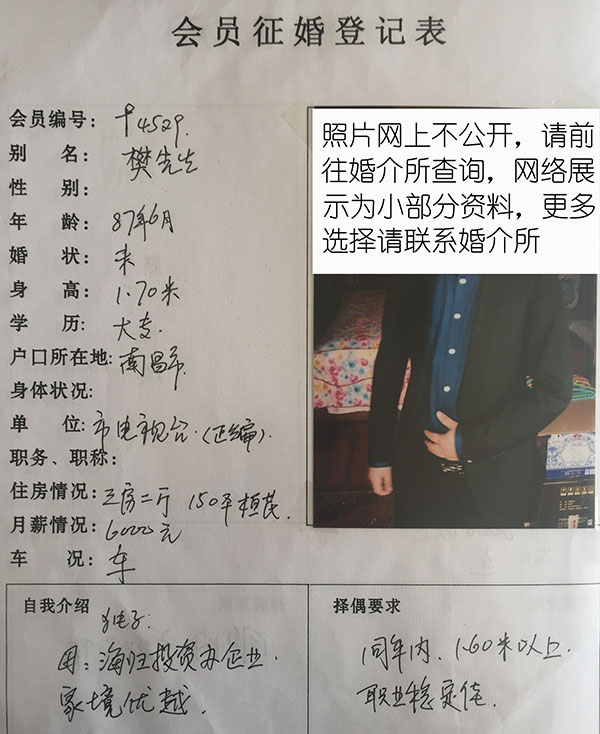 会员征婚登记表
会员编号: 4529.
别 名: 樊先生
性 别:
年 龄: 87年6月
婚 状: 未
身 高: 1.70米
学 历: 大专.
户口所在地: 南昌市
身体状况:
单 位: 市电视台.(正编).
职务、职称:
住房情况: 三房二厅 150平
月薪情况: 6000元
车 况: 车
照片网上不公开，请前
往婚介所查询，网络展
示为小部分资料，更多
选择请联系婚介所
自我介绍
独子.
海归投资办企业
家境优越.
择偶要求
同年内、1.60米以上.
职业稳定佳.